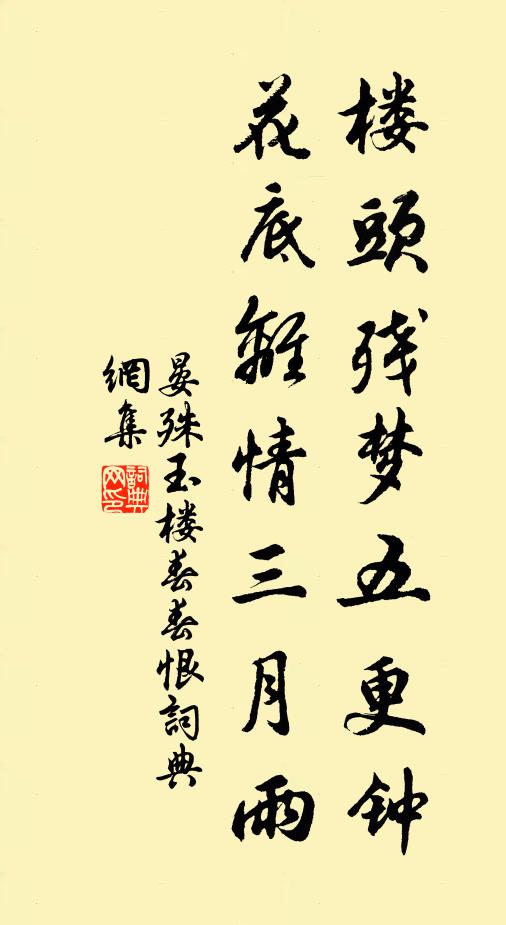 楼頭残梦五更钟
花底離情三月雨
晏殊玉楼春春恨詞典
網集
詞典网印